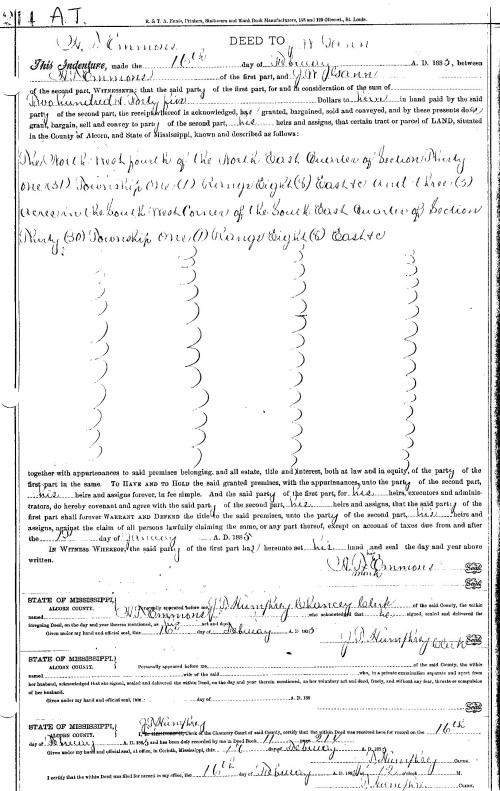 214 A.T.
R. & T. A. Ennis, Printers, Stationers and Blank Book Manufacturers, 118 and 120 Olive st., St. Louis.
Emmons DEED TO J W Gann
This Indenture, made the 16th day of Febuary A. D. 1885, between
Emmons of the first part, and J W Gann
of the second part, WITNESSETH; that the said party of the first part, for and in consideration of the sum of
Two hundred & Forty five Dollars to him in hand paid by the said
party of the second part, the receipt whereof is acknowledged, has granted, bargained, sold and conveyed, and by these presents does
grant, bargain, sell and convey to party of the second part, his heirs and assigns, that certain tract or parcel of LAND, situated
in the County of Alcorn, and State of Mississippi, known and described as follows:
The North West fourth of the North East Quarter of Section Thirty
one (31) Township One (1) Range Eight (8) East &c and three (3)
acres in the South West Corner of the South East Quarter of Section
Thirty (30) Township One (1) Range Eight (8) East &c
together with appurtenances to said premises belonging, and all estate, title and interest, both at law and in equity, of the party of the
first part in the same. TO HAVE AND TO HOLD the said granted premises, with the appurtenances, unto the party of the second part,
his heirs and assigns forever, in fee simple. And the said party of the first part, for his heirs, executors and administrators,
do hereby covenant and agree with the said party of the second part, his heirs and assigns, that the said party of the
first part shall forever WARRANT AND DEFEND the title to the said premises, unto the party of the second part, his heirs and
assigns, against the claim of all persons lawfully claiming the same, or any part thereof, except on account of taxes due from and after
the 1st day of January A. D. 1885
IN WITNESS WHEREOF, the said party of the first part has hereunto set his hand and seal the day and year above
written.
Emmons
mark
STATE OF MISSISSIPPI,
ALCORN COUNTY. Personally appeared before me, J. D. Humphrey Chancey Clerk of the said County, the within
named Emmons who acknowledged that he signed, sealed and delivered the
foregoing Deed, on the day and year therein mentioned, as his act and deed.
Given under my hand and official seal, this 16 day of Febuary A. D. 1885
J. D. Humphrey Clerk
STATE OF MISSISSIPPI,
ALCORN COUNTY. Personally appeared before me, of the said County, the within
named wife of the said who, in a private examination separate and apart from
her husband, acknowledged that she signed, sealed and delivered the within Deed, on the day and year therein mentioned, as her voluntary act and deed, freely, and without any fear, threats or compulsion
of her husband.
Given under my hand and official seal, this day of A. D. 188
STATE OF MISSISSIPPI,
ALCORN COUNTY. J D Humphrey Clerk of the Chancery Court of said County, certify that the within Deed was received here for record on the 16th
day of Febuary A. D. 1885 and has been duly recorded by me in Deed Book 11 page 214
Given under my hand and official seal, at office, in Corinth, Mississippi, this Febuary A. D. 188
J. D. Humphrey CLERK.
I certify that the within Deed was filed for record in my office, the 16th day of Febuary A. D. 188 at 12 o'clock M.
J. Humphrey CLERK.